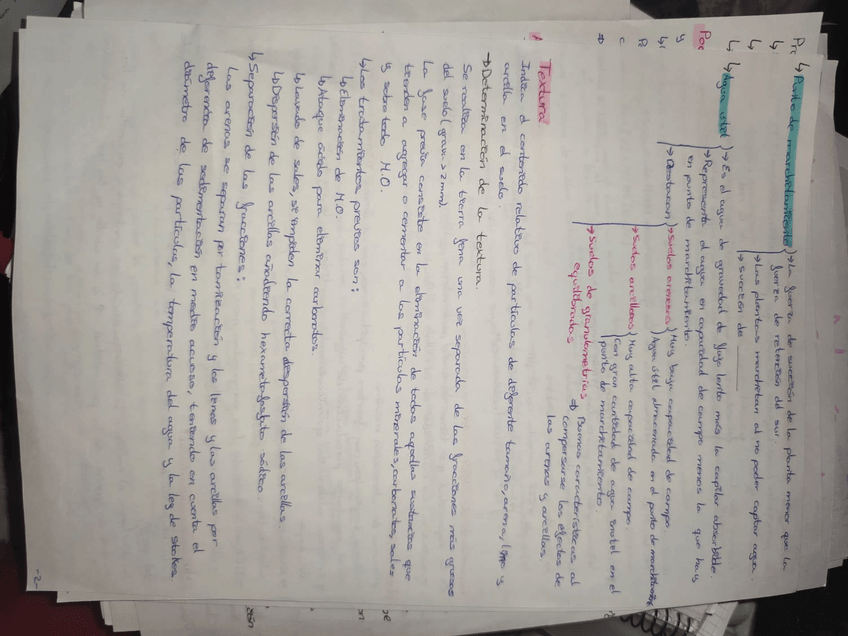 ↳ Punto de marchitamiento → La fuerza de succión de la planta menor que la
fuerza de retención del sur.
→ Las plantas marchitan al no poder captar agua.
→ Succión de
↳ Agua útil → Es el agua de gravedad de flujo lento más la capilar absorbible.
→ Representa el agua en capacidad de campo menos la que hay
en punto de marchitamiento.
→ Destacan → Suelos arenosos Muy baja capacidad de campo.
Agua útil almacenada en el punto de marchitamiento
→ Suelos arcillosos Muy alta capacidad de campo.
Con gran cantidad de agua inútil en el
punto de marchitamiento.
→ Suelos de granulometrías ⇒ Buenas características al
equilibradas compensarse los efectos de
las arenas y arcillas.
Textura
Indica el contenido relativo de partículas de diferente tamaño, arena, limo y
arcilla en el suelo.
→ Determinación de la textura.
Se realiza en la tierra fina una vez separada de las fracciones más gruesas
del suelo (grava > 2 mm).
La fase previa consiste en la eliminación de todas aquellas sustancias que
tienden a agregar o cementar a las partículas minerales, carbonatos, sales
y sobre todo M.O.
↳ Los tratamientos previos son:
↳ Eliminación de M.O.
↳ Ataque ácido para eliminar carbonatos.
↳ Lavado de sales, si impiden la correcta dispersión de las arcillas.
↳ Dispersión de las arcillas añadiendo hexametafosfato sódico.
↳ Separación de las fracciones:
Las arenas se separan por tamización y los limos y las arcillas por
diferencia de sedimentación en medio acuoso, teniendo en cuenta el
diámetro de las partículas, la temperatura del agua y la ley de Stokes.
-2-